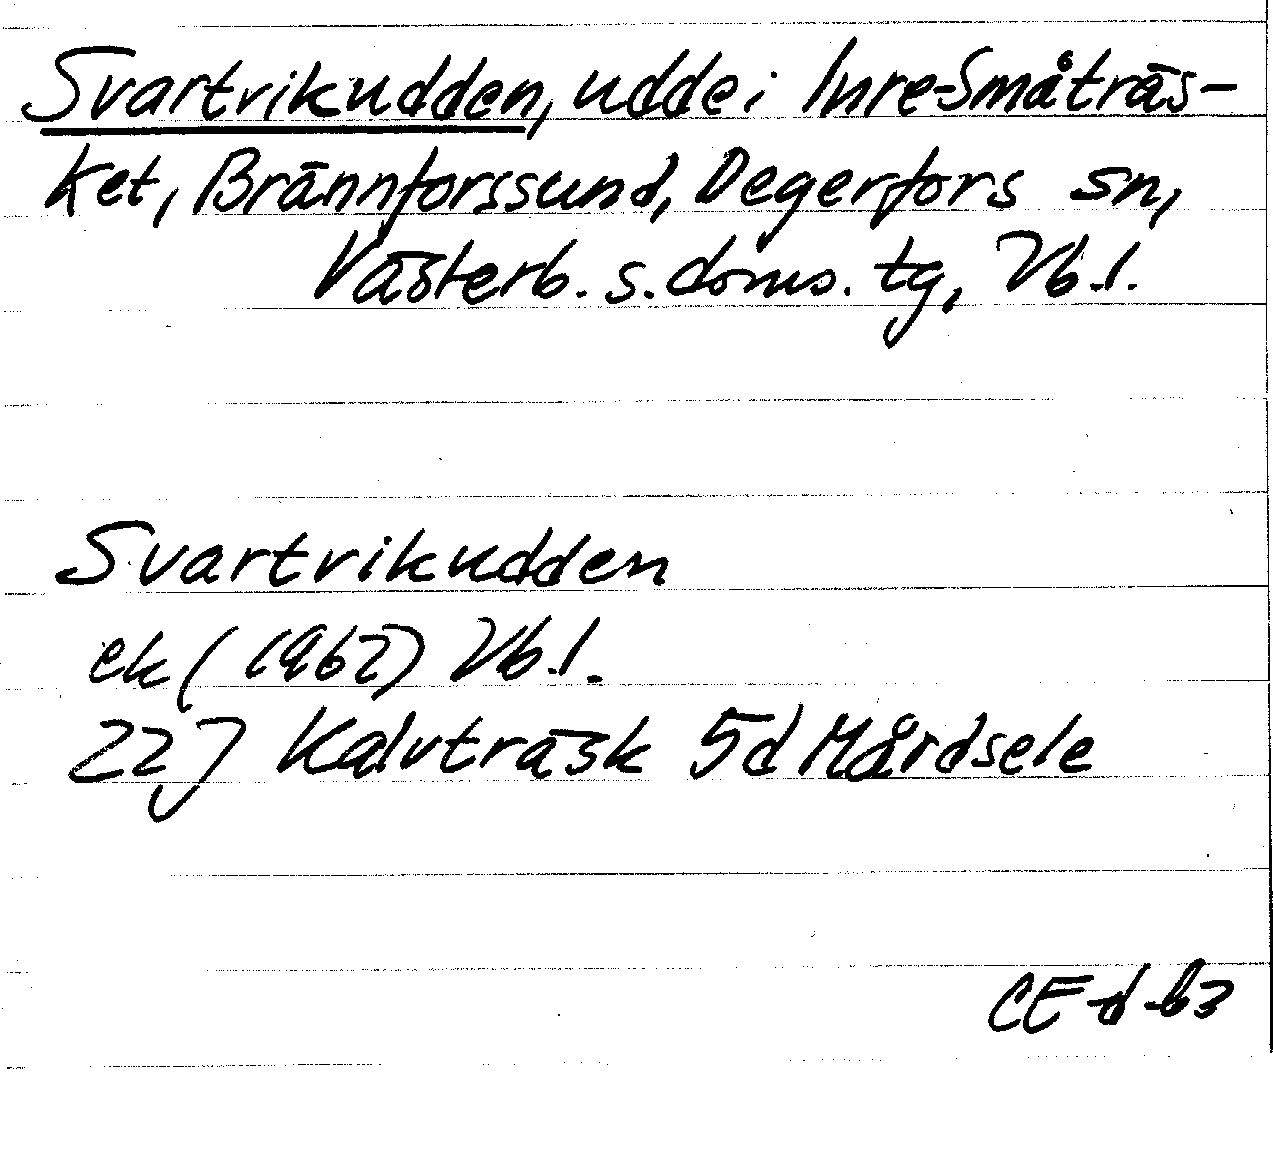 Svartvikudden, udde i Inre-Småträs-
ket, Brännforssund, Degerfors sn,
Västerb. s. doms. tg, Vb.l.
Svartvikudden
ek (1962) Vb.l.
22J Kalvträsk 5d Mårdsele
CE-d-63